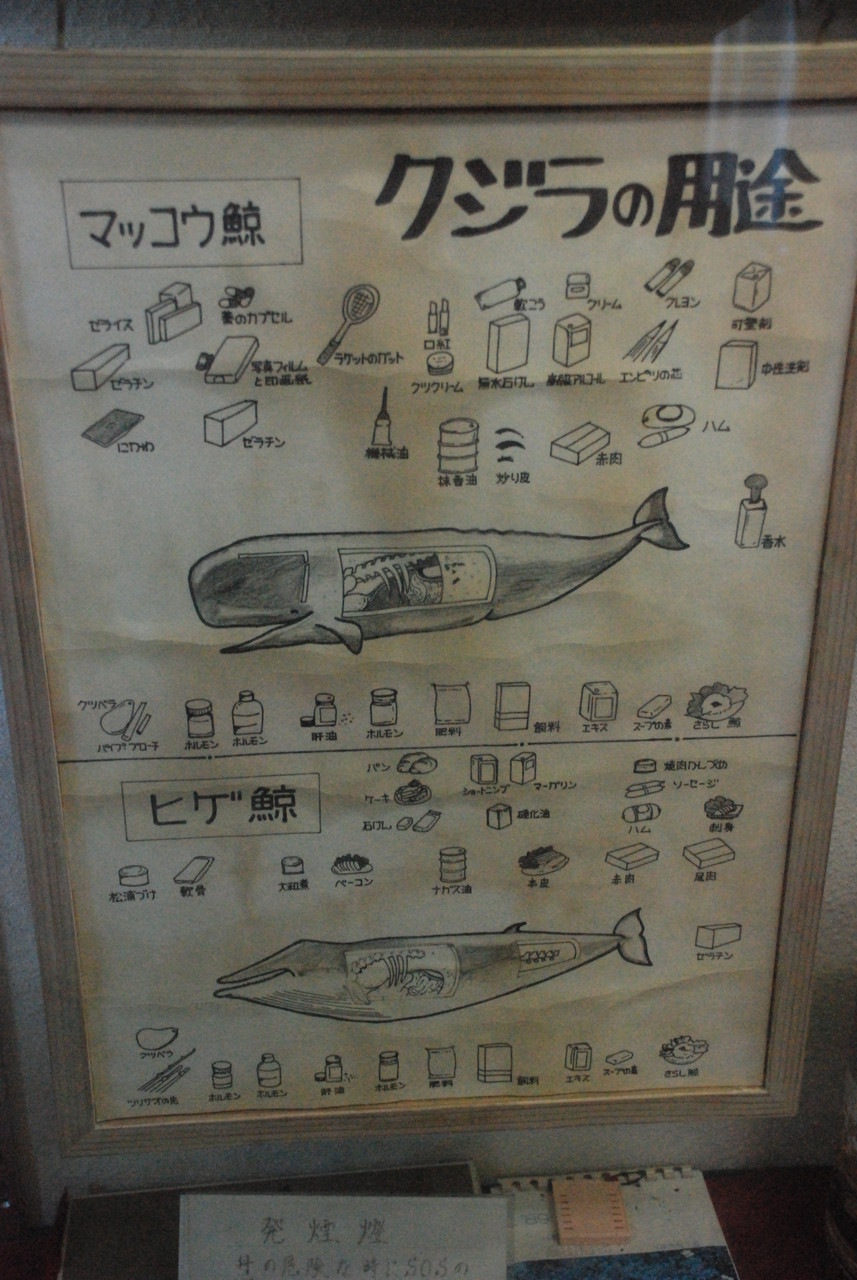 クジラの用途
マッコウ鯨
ゼライス
薬のカプセル
ラケットのガット
口紅
軟こう
クリーム
クレヨン
可塑剤
ゼラチン
写真フィルム
と印画紙
クツクリーム
無水石けし
高級アルコール
エンピツの芯
中性洗剤
にかわ
ゼラチン
機械油
抹香油
炒り皮
赤肉
ハム
香水
クツベラ
パイプ ブローチ
ホルモン
ホルモン
肝油
ホルモン
肥料
飼料
エキス
スープの素
さらし鯨
ヒゲ鯨
パン
ショートニング
マーガリン
焼肉かんづめ
ケーキ
ソーセージ
石けし
硬化油
ハム
刺身
松浦づけ
軟骨
大和煮
ベーコン
ナガス油
本皮
赤肉
尾肉
ゼラチン
クツベラ
ツリザオの先
ホルモン
ホルモン
肝油
ホルモン
肥料
飼料
エキス
スープの素
さらし鯨
発煙燈
の危険な時にSOSの